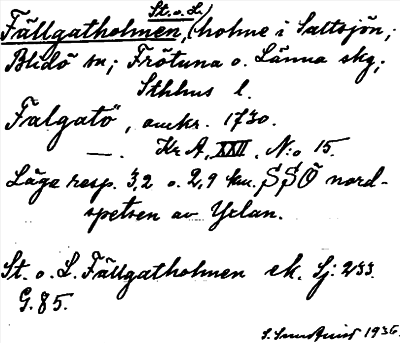 St. o. L.
Fällgatholmen, (holme i Saltsjön;
Blidö sn; Frötuna o. Länna skg;
Sthlms l.
Falgatö, omkr. 1730.
—. Kr A, XXII, N:o 15.
Läge resp. 3,2 o. 2,9 km. SSÖ nord-
spetsen av Yxlan.
St. o. L. Fällgatholmen ek. Sj: 233.
G. 85.
1936.